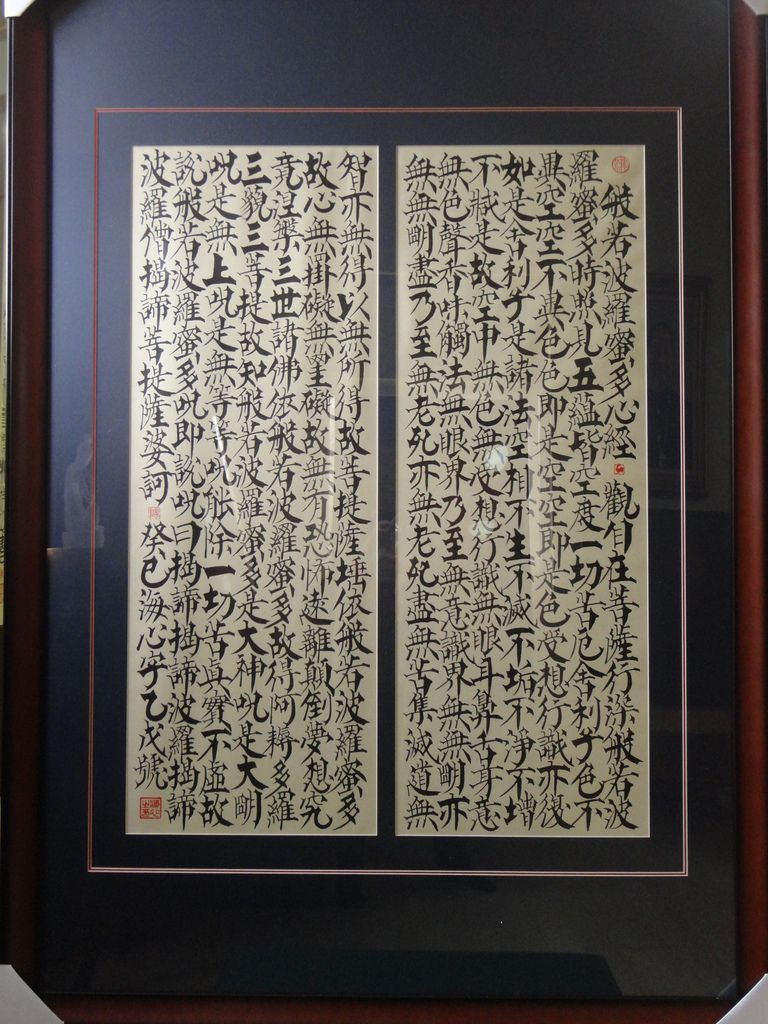 般若波羅蜜多心經 觀自在菩薩行深般若波
羅蜜多時照見五蘊皆空度一切苦厄舍利子色不
異空空不異色色即是空空即是色受想行識亦復
如是舍利子是諸法空相不生不滅不垢不淨不增
不減是故空中無色無受想行識無眼耳鼻舌身意
無色聲香味觸法無眼界乃至無意識界無無明亦
無無明盡乃至無老死亦無老死盡無苦集滅道無
智亦無得以無所得故菩提薩埵依般若波羅蜜多
故心無掛礙無罣礙故無有恐怖遠離顛倒夢想究
竟涅槃三世諸佛依般若波羅蜜多故得阿耨多羅
三藐三菩提故知般若波羅蜜多是大神咒是大明
咒是無上咒是無等等咒能除一切苦真實不虛故
說般若波羅蜜多咒即說咒曰揭諦揭諦波羅揭諦
波羅僧揭諦菩提薩婆訶 癸巳海心字乙戊號